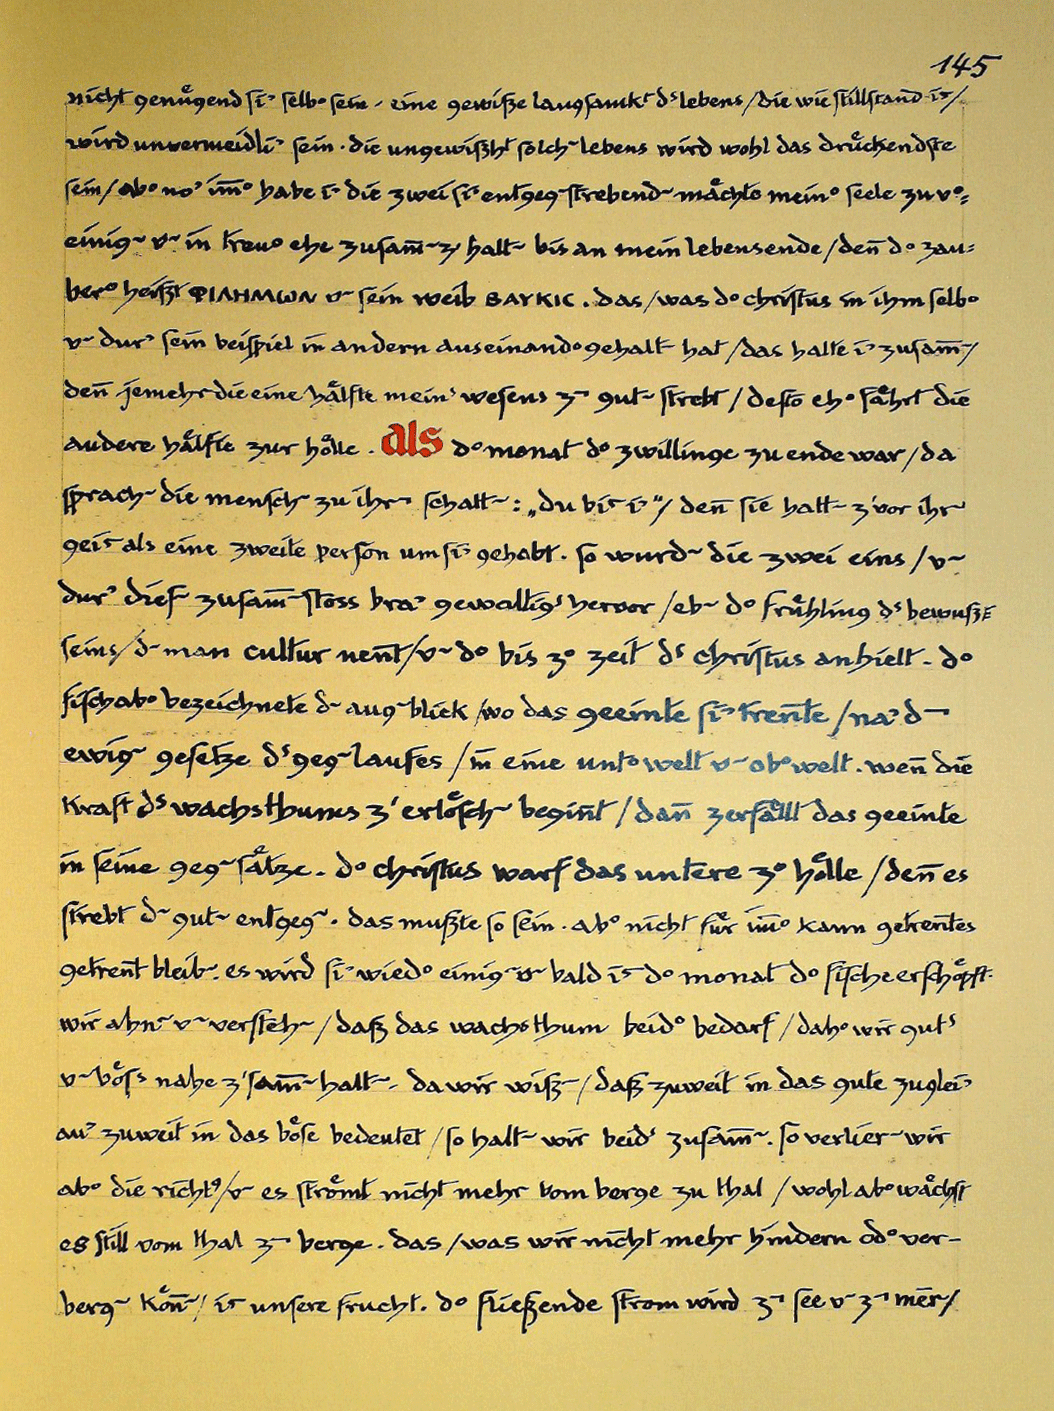 145
nicht genűgend si˜ selb° sein · eine gewiſze langsamk˜t dˢ lebens / die wie stillstand i˜ /
wird unvermeidli˜ sein · die ungewiſzh˜t solch˜ lebens wird wohl das drűckendste
sein / ab° no˜ im̄° habe i˜ die zwei si˜ entgeg˜strebend˜ mächte mein° seele zu v°=
einig˜ u˜ in treu° ehe zusam̄˜ z' halt˜ bis an mein lebensende / den̄ d° zau=
ber° heiſzt ΦΙΛΗΜΩΝ u˜ sein weib BAYKIC . das / was d° christus in ihm selb°
u˜ dur˜ sein beispiel in andern auseinand°gehalt˜ hat / das halte i˜ zusam̄˜ /
den̄ jemehr die eine hälfte meinˢ wesens z˜ gut˜ strebt / desto eh° fährt die
andere hälfte zur hölle . als d° monat d° zwillinge zu ende war / da
sprach˜ die mensch˜ zu ihr˜ schatt˜ : „du bi˜ i˜" / den̄ sie hatt˜ z'vor ihr˜
gei˜ als eine zweite person um si˜ gehabt . so wurd˜ die zwei eins / u˜
dur˜ dies˜ zusam̄˜stoss bra˜ gewaltigˢ hervor / eb˜ d° frühling dˢ bewuſzt=
seins / d˜ man cultur nen̄t / u˜ d° bis z° zeit dˢ christus anhielt . d°
fisch ab° bezeichnete d˜ aug˜blick / wo das geeinte si˜ tren̄te / na˜ d˜
ewig˜ gesetze dˢ geg˜laufes / in eine unt°welt u˜ ob°welt . wen̄ die
kraft dˢ wachsthums z' erlösch˜ begin̄t / dan̄ zerfällt das geeinte
in seine geg˜sätze . d° christus warf das untere z° hölle / den̄ es
strebt d˜ gut˜ entgeg˜ . das muſzte so sein . ab° nicht für im̄° kann getren̄tes
getren̄t bleib˜ . es wird si˜ wied° einig˜ u˜ bald i˜ d° monat d° fische erschöpft .
wir ahn˜ u˜ versteh˜ / daſz das wachsthum beid° bedarf / dah° wir gutˢ
u˜ bösˢ nahe z'sam̄˜halt˜ . da wir wiſz˜ / daſz zuweit in das gute zuglei˜
au˜ zuweit in das böse bedeutet / so halt˜ wir beidˢ zusam̄˜ . so verlier˜ wir
ab° die richtᵍ / u˜ es strömt nicht mehr vom berge zu thal / wohl ab° wächst
es still vom thal z˜ berge . das / was wir nicht mehr hindern od° ver-
berg˜ kön̄˜ / i˜ unsere frucht . d° fließende strom wird z˜ see u˜ z˜ mēr /